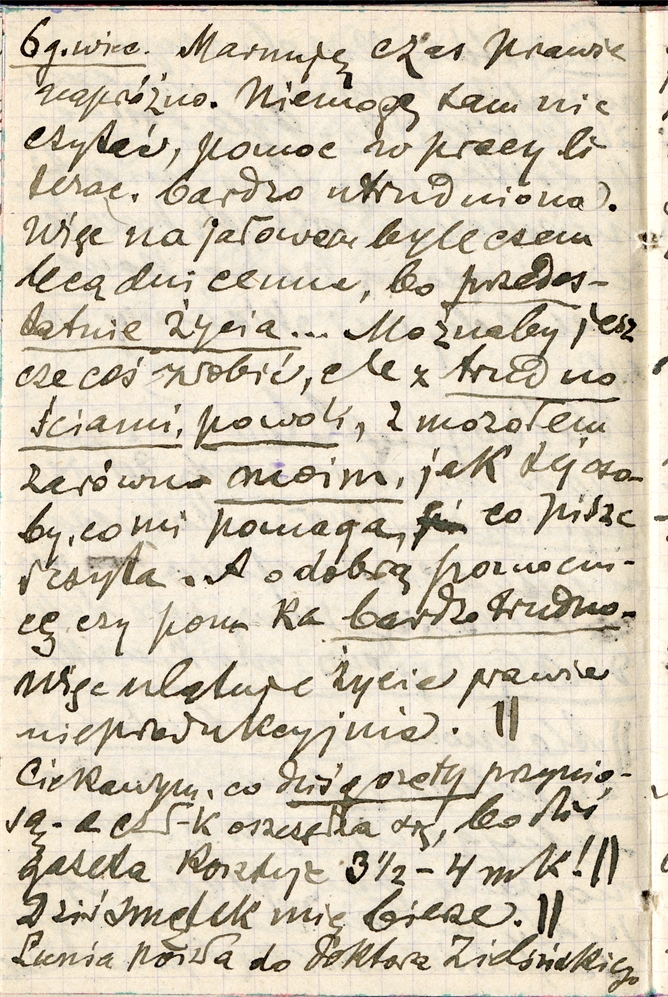 6g. wiec. Marnuję czas prawie
napróżno. Niemogę sam nic
czytać, pomoc w pracy li
terac. bardzo utrudniona.
Więc na jałowem byleczem
lecą dni cenne, bo przedos-
tatnie życia... Możnaby jesz
cze coś zrobić, ale z trudno
ściami, powoli, z mozołem
zarówno moim, jak tej oso-
by, co mi pomaga, co pisze
i czyta. A o dobrą pomocni-
cę czy pom ka bardzo trudno.
Więc ulatuje życie prawie
nieprodukcyjnie. ||
Ciekawym, co dziś gazety przynio-
są - a czł-k oszczędza się, bo dziś
gazeta kosztuje 3 1/2 - 4 mk! ||
Dziś smętek mię bierze. ||
Lunia poszła do Doktora Zielińskiego